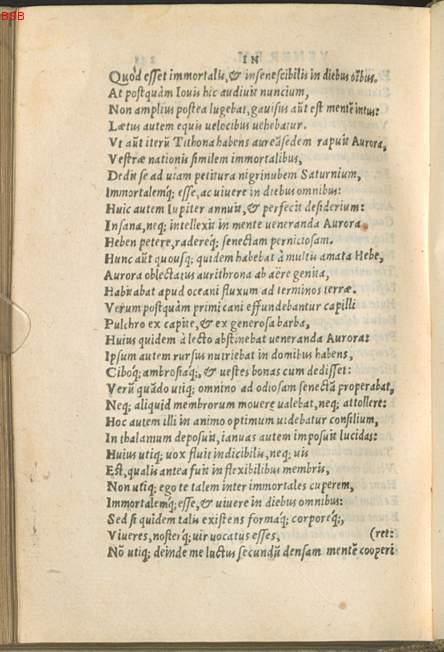 BSB
IN
Quòd esset immortalis, & insenescibilis in diebus oībus.
At postquàm Iouis hic audiuit nuncium,
Non amplius postea lugebat, gauisus aūt est mentē intus:
Lætus autem equis velocibus uehebatur.
Vt aūt iterū Tithona habens aureā sedem rapuit Aurora,
Vestræ nationis similem immortalibus,
Dedit se ad uiam petitura nigrinubem Saturnium,
Immortalemq́; esse, ac uiuere in diebus omnibus:
Huic autem Iupiter annuit, & perfecit desiderium:
Insana, neq; intellexit in mente ueneranda Aurora
Heben petere, radereq́; senectam perniciosam.
Hunc aūt quousq; quidem habebat à multis amata Hebe,
Aurora oblectatus aurithrona ab aëre genita,
Habitabat apud oceani fluxum ad terminos terræ.
Verum postquàm primi cani effundebantur capilli
Pulchro ex capite, & ex generosa barba,
Huius quidem à lecto abstinebat ueneranda Aurora:
Ipsum autem rursus nutriebat in domibus habens,
Ciboq́; ambrosiaq́;, & uestes bonas cum dedisset:
Verū quādo utiq; omnino ad odiosam senectā properabat,
Neq; aliquid membrorum mouere ualebat, neq; attollere:
Hoc autem illi in animo optimum uidebatur consilium,
In thalamum deposuit, ianuas autem imposuit lucidas:
Huius utiq; uox fluit indicibilis, neq; uis
Est, qualis antea fuit in flexibilibus membris,
Non utiq; ego te talem inter immortales cuperem,
Immortalemq́; esse, & uiuere in diebus omnibus:
Sed si quidem talis existens formaq́; corporeq́;,
Viueres, nosterq́; uir uocatus esses, (ret:
Nō utiq; deinde me luctus secundū densam mentē cooperi